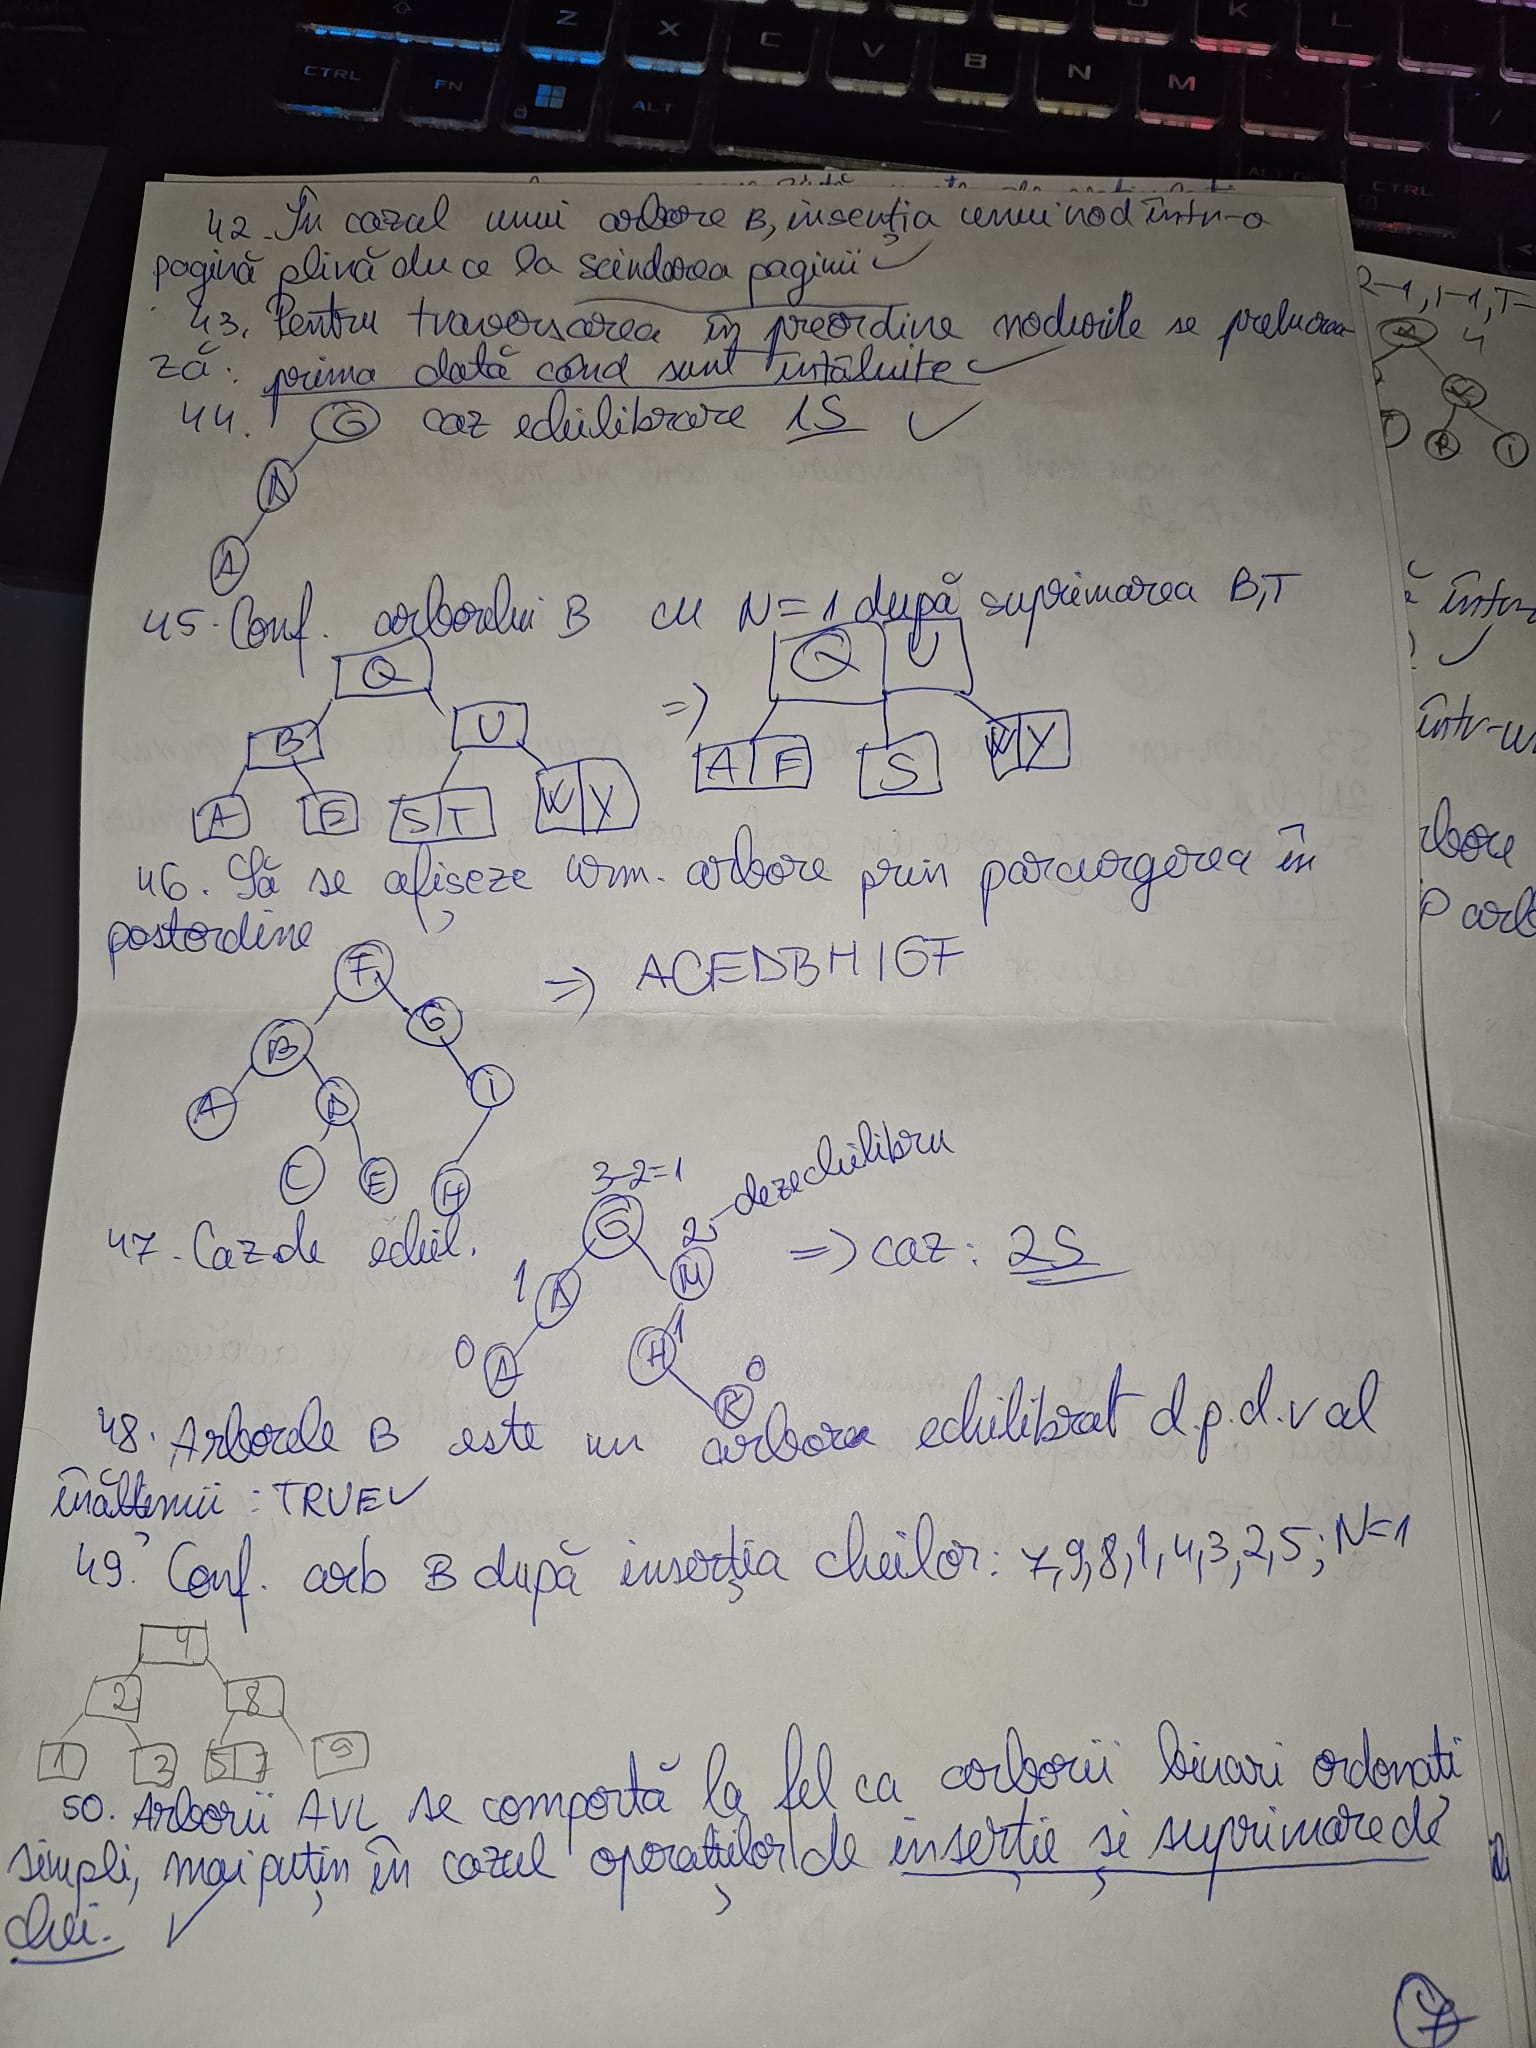 Z X C V B N M K L
CTRL FN ALT CTRL
42. În cazul unui arbore B, inserția unui nod într-o
pagină plină duce la scindarea paginii ✓
43. Pentru traversarea în preordine nodurile se prelucrea-
ză: prima dată când sunt întâlnite ✓
44. G caz echilibrare 1S ✓
A
A
45. Conf. arborelui B cu N=1 după suprimarea B,T
Q => Q U
B U
A E S T W Y A E S W Y
46. Să se afișeze urm. arbore prin parcurgerea în
postordine
F => ACEDBHIGF
B G
A D I
C E H
47. Caz de echil. 3-2=1 G 2 - dezechilibru
1 A M => caz: 2S
0 A H 1
K 0
48. Arborele B este un arbore echilibrat d.p.d.v al
înălțimii: TRUE ✓
49. Conf. arb B după inserția cheilor: 7,9,8,1,4,3,2,5; N=1
4
2 8
1 3 5 7 9
50. Arborii AVL se comportă la fel ca arborii binari ordonati
simpli, mai puțin în cazul operațiilor de inserție și suprimare de
chei. ✓
7
2-1, 1-1, T-
4
R I
într-
✓
într-un
arbore
arb